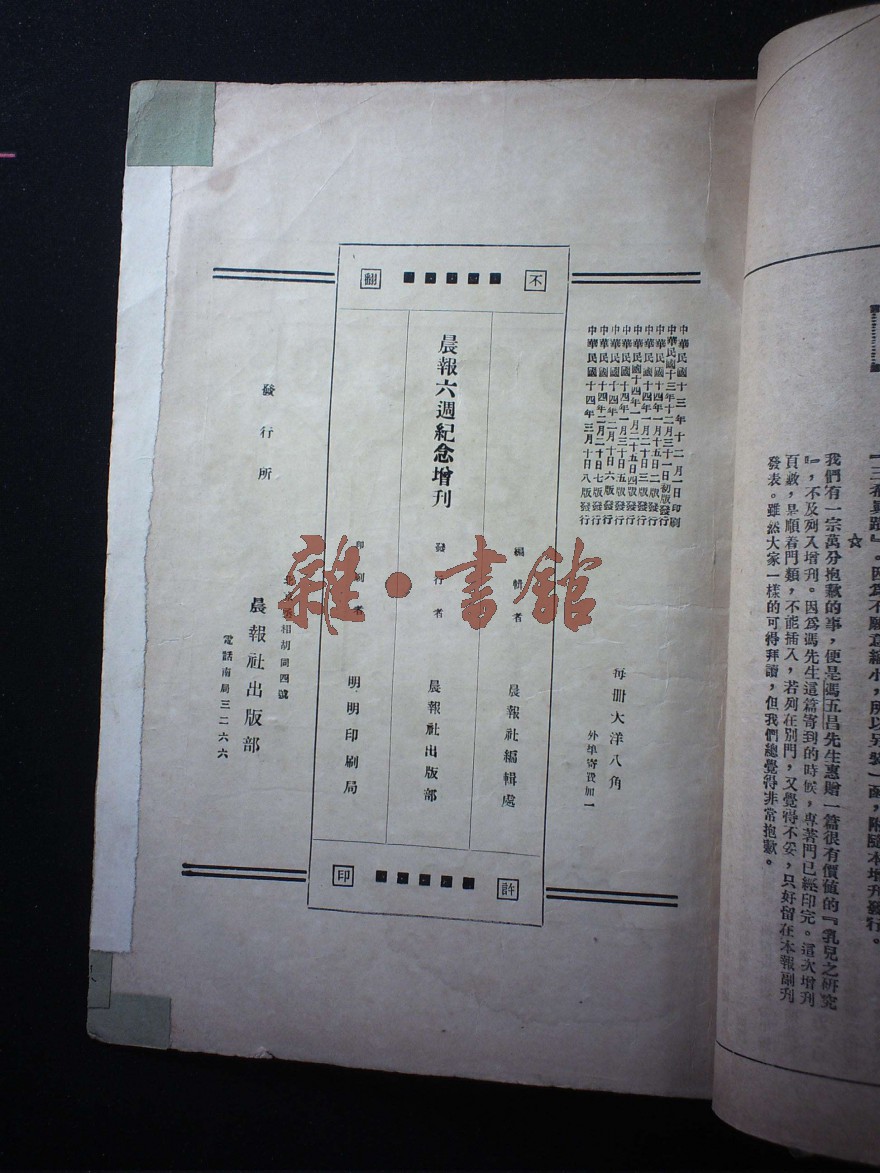 『三希真蹟』。因爲不願意縮小，所以另裝一函，附隨本增刊發行。
☆
我們有一宗萬分抱歉的事，便是馮五昌先生惠贈一篇很有價値的『乳兒之研究
』，不及列入增刊。因爲馮先生這篇寄到的時候，專著門已經印完。這次增刊
頁數，是順着門類，不能插入，若列在別門，又覺得不妥，只好留在本報副刊
發表。雖然大家一樣的可得拜讀，但我們總覺得非常抱歉。
中華民國十三年十二月一日印刷
中華民國十三年十二月三十一日初版發行
中華民國十四年一月十五日二版發行
中華民國十四年一月二十日三版發行
中華民國十四年一月二十五日四版發行
中華民國十四年一月三十日五版發行
中華民國十四年二月十日六版發行
中華民國十四年二月二十日七版發行
中華民國十四年三月十日八版發行
每冊大洋八角
外埠寄費加一
不許翻印
編輯者 晨報社編輯處
晨報六週紀念增刊
發行者 晨報社出版部
印刷者 明明印刷局
發行所
胡同四號
晨報社出版部
電話南局三二六六
雜·書館